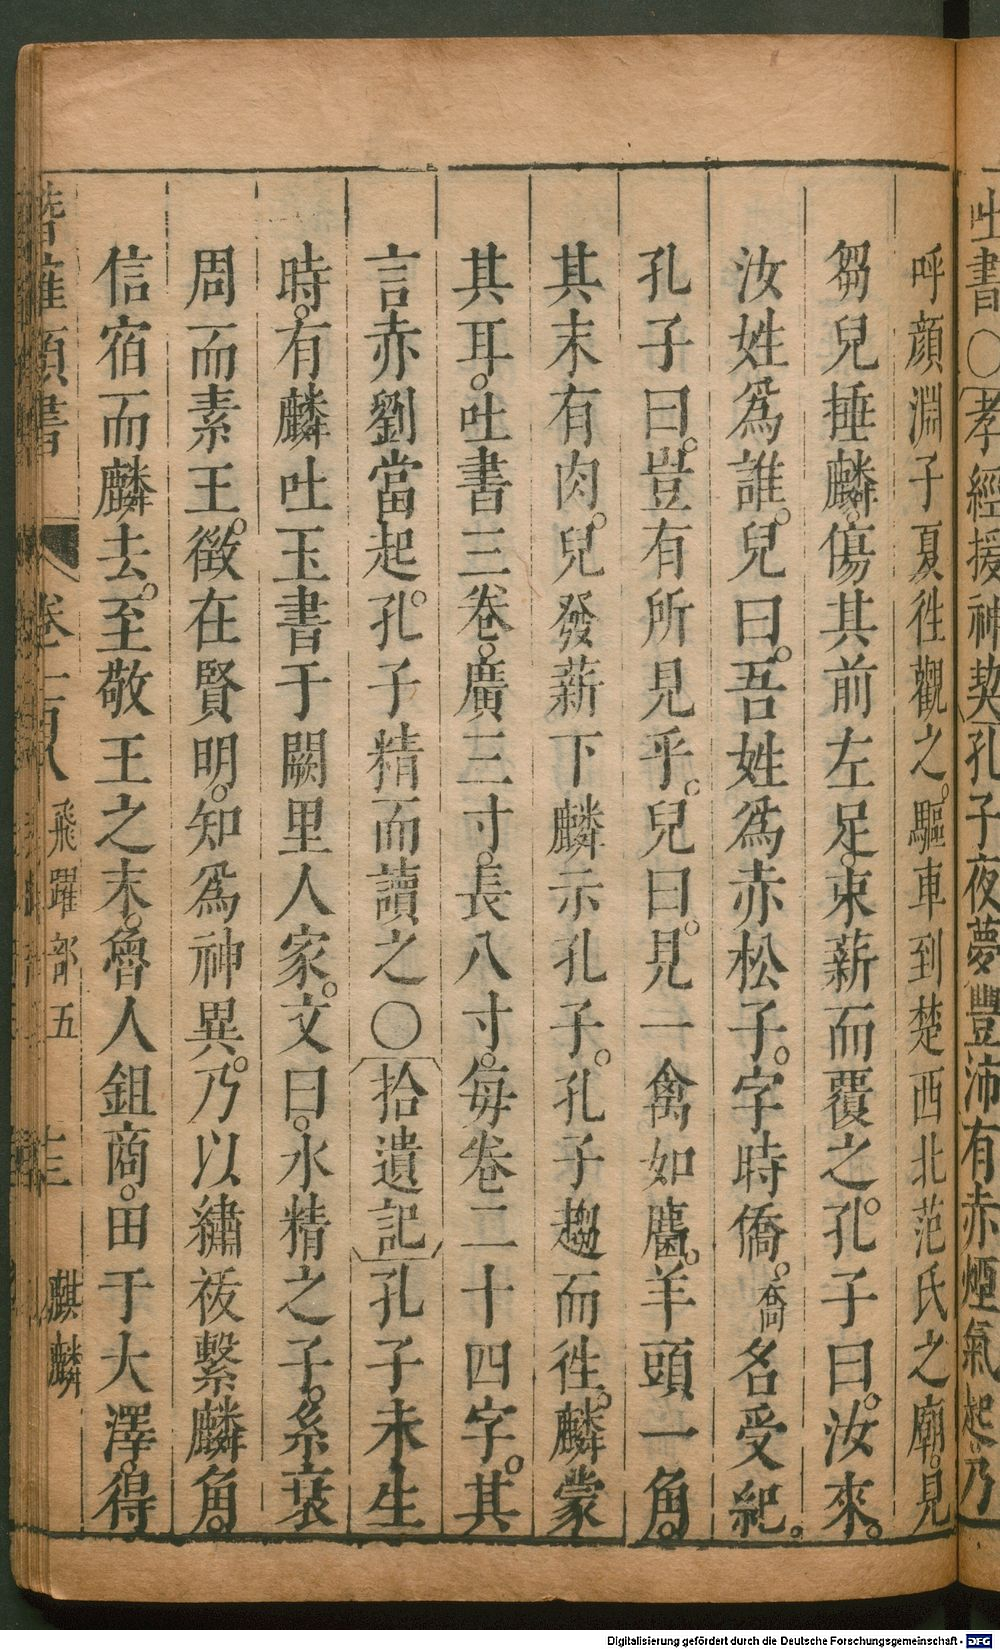 吐書〇孝經援神契孔子夜夢豐沛有赤煙氣起乃
呼顔淵子夏徃觀之。驅車到楚西北范氏之廟。見
芻兒捶麟。傷其前左足。束薪而覆之。孔子曰。汝來。
汝姓爲誰。兒曰。吾姓爲赤松子。字時僑。喬名受紀。
孔子曰。豈有所見乎。兒曰。見一禽如麕。羊頭一角。
其末有肉。兒發薪下麟示孔子。孔子趨而徃。麟蒙
其耳。吐書三卷。廣三寸。長八寸。每卷二十四字。其
言赤劉當起。孔子精而讀之〇拾遺記孔子未生
時。有麟吐玉書于闕里人家。文曰。水精之子。系衰
周而素王。徵在賢明。知爲神異。乃以繡紱繫麟角。
信宿而麟去。至敬王之末。魯人鉏商。田于大澤。得
卷一百八 飛躍部五 麒麟
Digitalisierung gefördert durch die Deutsche Forschungsgemeinschaft - DFG